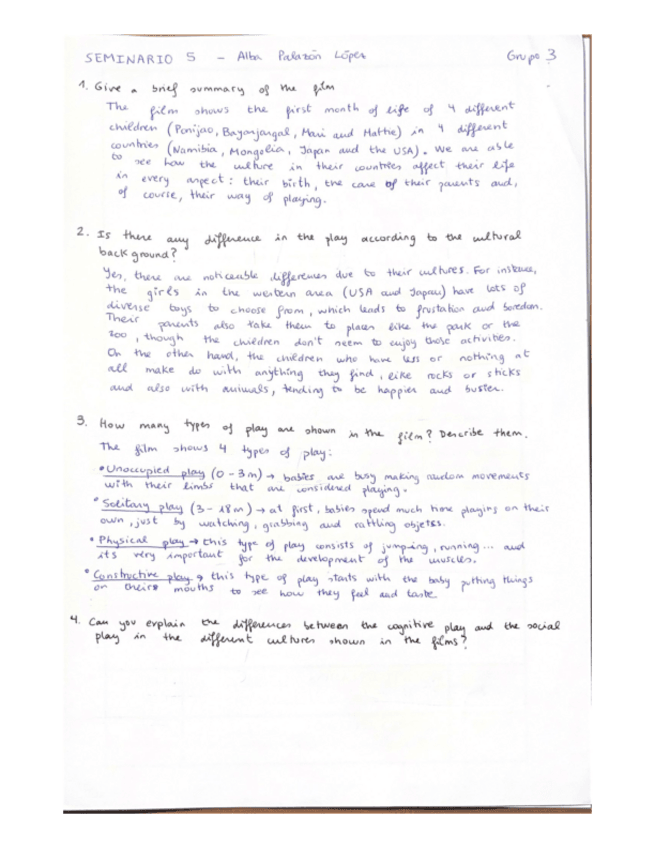 SEMINARIO 5 - Alba Palazón López Grupo 3
1. Give a brief summary of the film
The film shows the first month of life of 4 different
children (Ponijao, Bayarjargal, Mari and Hattie) in 4 different
countries (Namibia, Mongolia, Japan and the USA). We are able
to see how the culture in their countries affect their life
in every aspect: their birth, the care of their parents and,
of course, their way of playing.
2. Is there any difference in the play according to the cultural
background?
Yes, there are noticeable differences due to their cultures. For instance,
the girls in the western area (USA and Japan) have lots of
diverse toys to choose from, which leads to frustation and boredom.
Their parents also take them to places like the park or the
zoo, though the children don't seem to enjoy those activities.
On the other hand, the children who have less or nothing at
all make do with anything they find, like rocks or sticks
and also with animals, tending to be happier and busier.
3. How many types of play are shown in the film? Describe them.
The film shows 4 types of play:
• Unoccupied play (0-3m) → babies are busy making random movements
with their limbs that are considered playing.
• Solitary play (3-18m) → at first, babies spend much time playing on their
own, just by watching, grabbing and rattling objects.
• Physical play → this type of play consists of jumping, running... and
its very important for the development of the muscles.
• Constructive play → this type of play starts with the baby putting things
on their mouths to see how they feel and taste.
4. Can you explain the differences between the cognitive play and the social
play in the different cultures shown in the films?